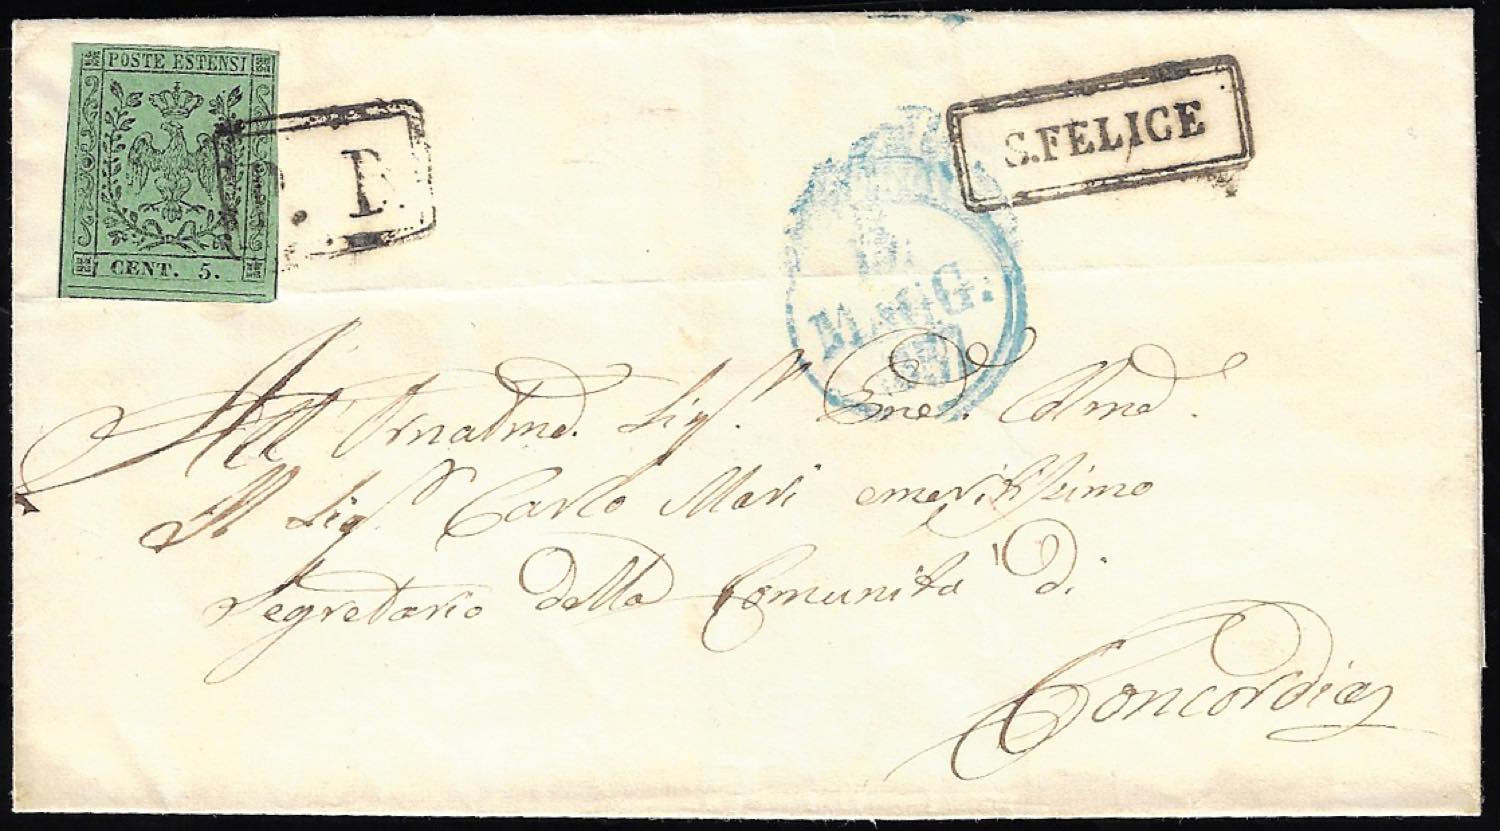 POSTE ESTENSI
CENT. 5.
P. D.
S. FELICE
MAGG:
All' Ornatmo. Sigr. Pne. Colmo.
Il Sigr. Carlo Mari emeritissimo
Segretario della Comunità di
Concordia